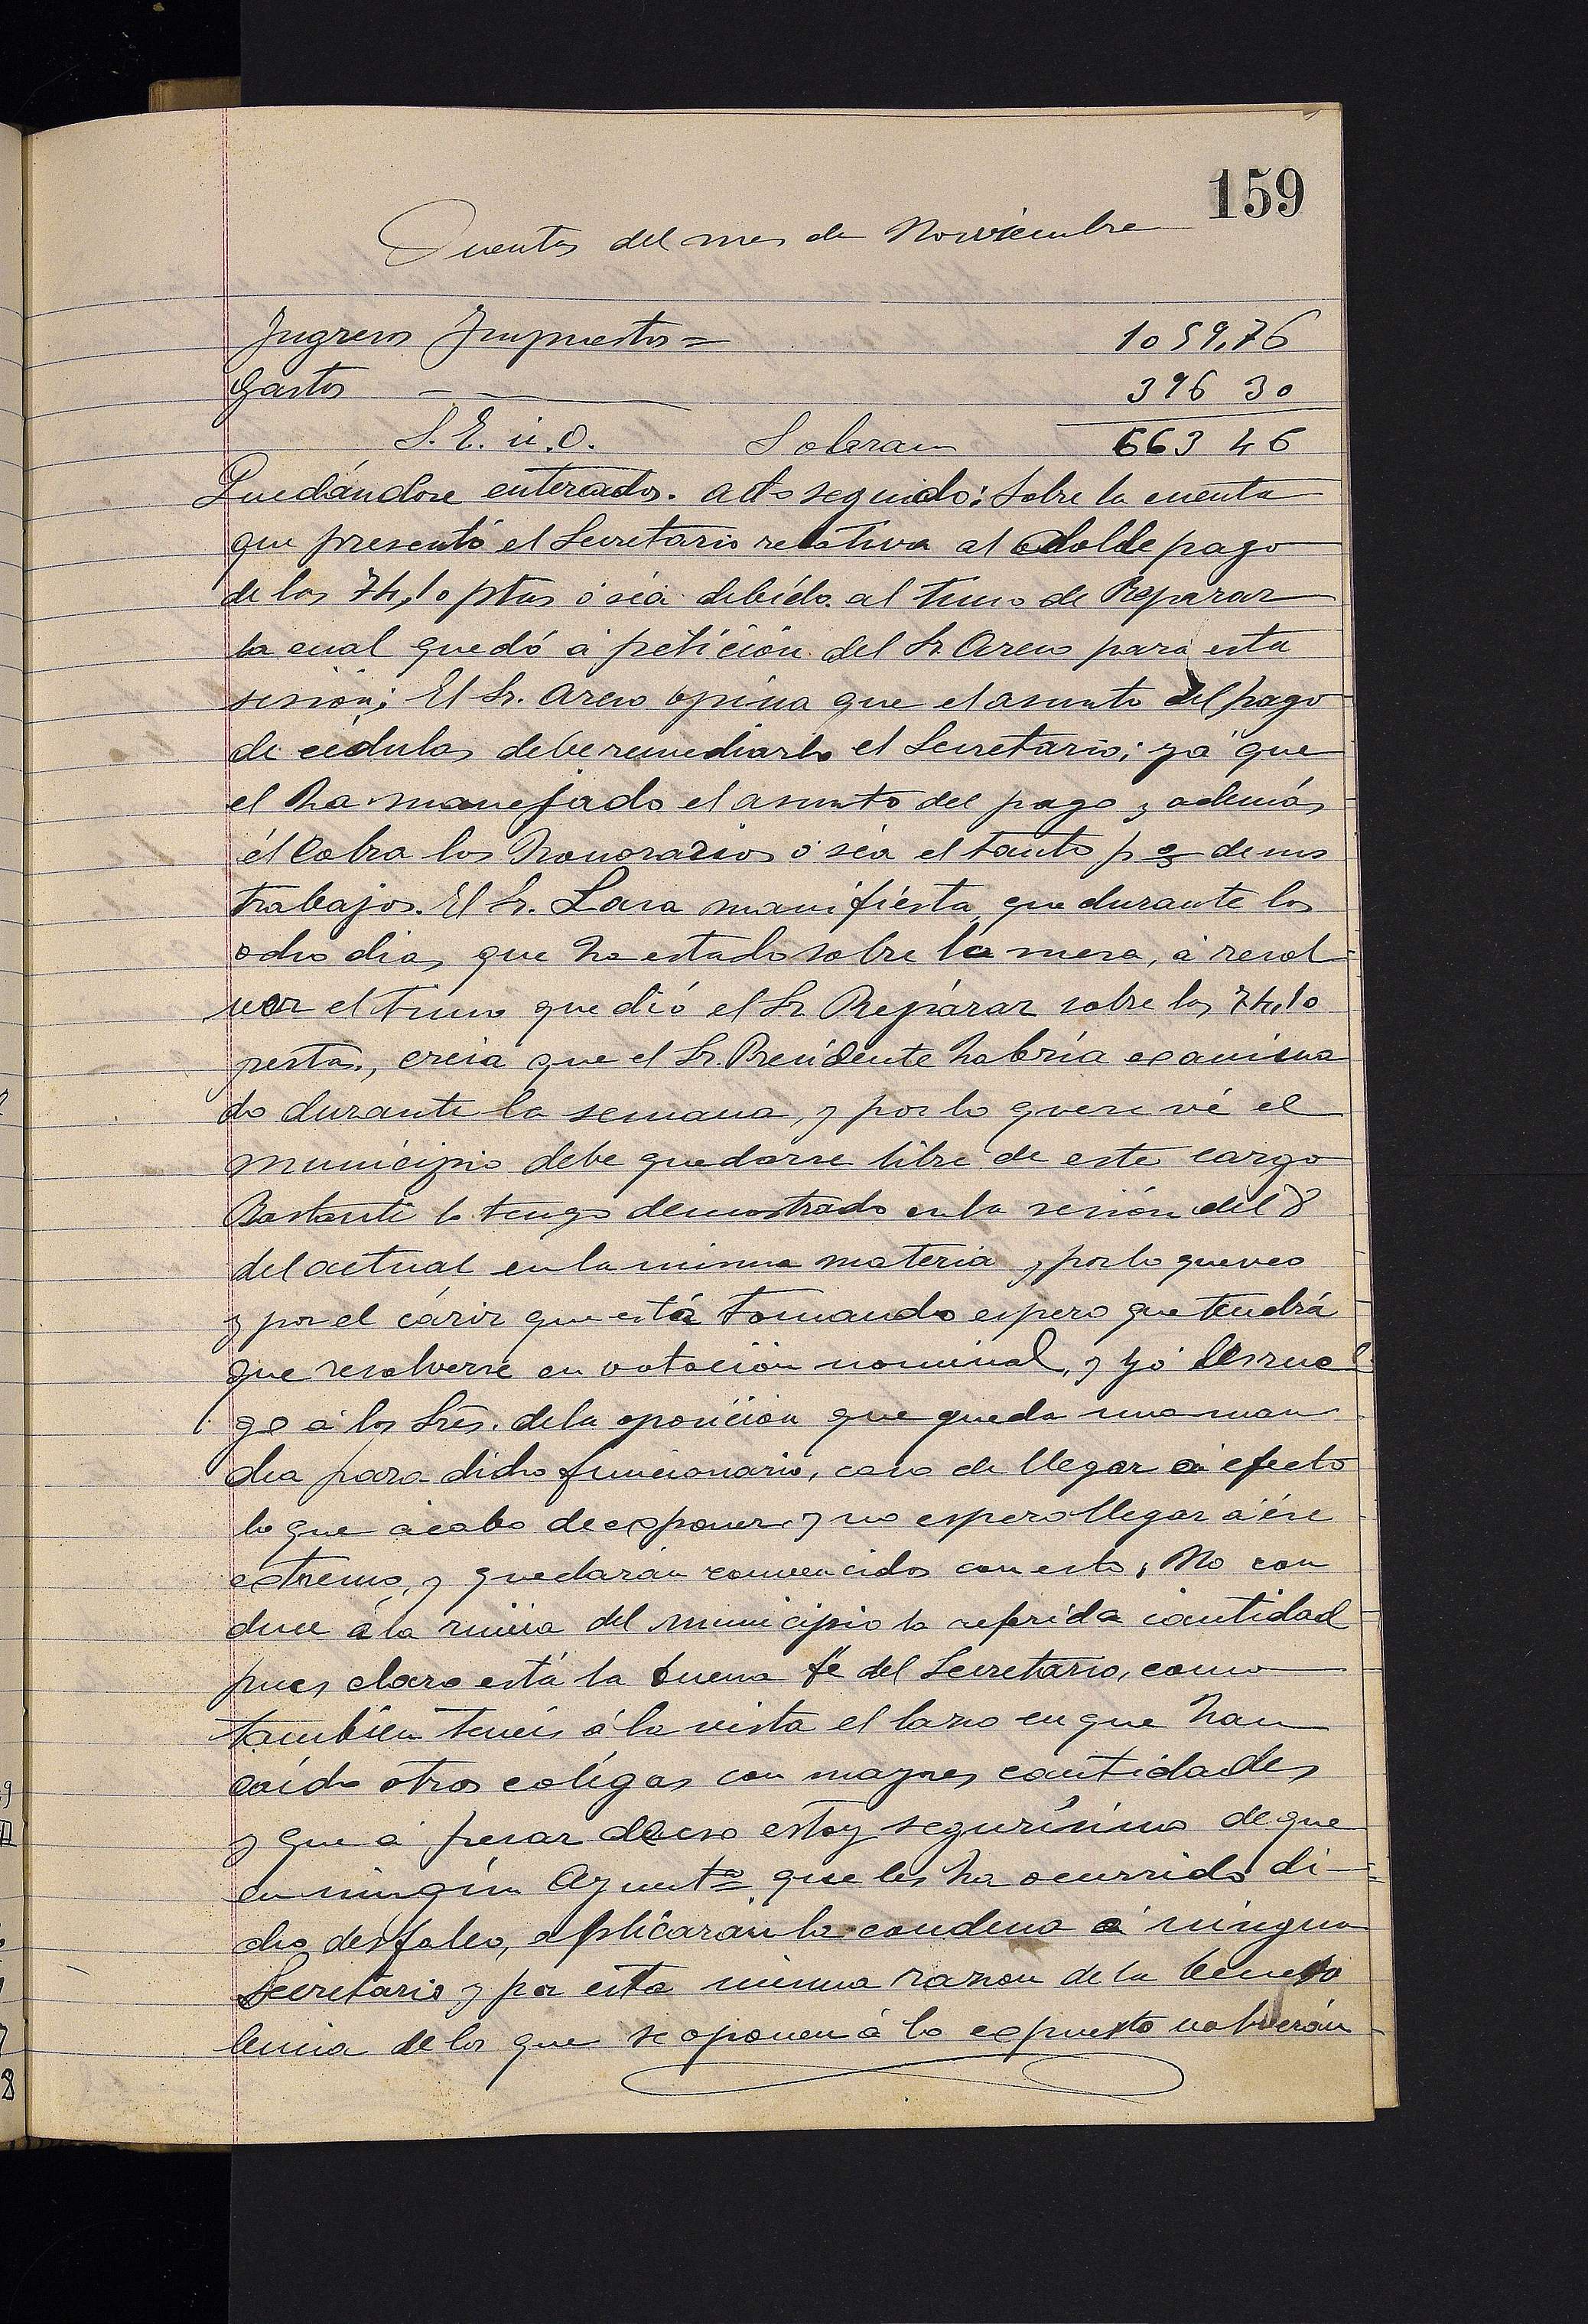 159
Cuentas del mes de Noviembre
Ingresos Impuestos = 1059,76
Gastos — 396 30
S. E. ú. O. Sobran 663 46
Quedándose enterados. acto seguido: Sobre la cuenta
que presentó el Secretario relativa al doble pago
de las 74,10 ptas ó séa debído al timo de Reparaz
la cual quedó á petición del Sr. Areso para esta
sesión; El Sr. Areso opina que el asunto del pago
de cédulas debe remediarlo el Secretario; yá que
el ha manejado el asunto del pago y además
él Cobra los honorarios ó séa el tanto p % de sus
trabajos. El Sr. Lasa manifiésta, que durante los
ocho dias que ha estado sobre la mesa, á resol
ver el timo que dió el Sr Repáraz sobre las 74,10
pestas., creia que el Sr. Presidente habría examina
do durante la semana, y por lo que se vé el
Municipio debe quedarse libre de este cargo
Bastante lo tengo demostrado en la sesión del 8
del actual en la misma materia y por lo que veo
y por el cáriz que está tomando espero que tendrá
que resolverse en votación nominal, y yó les rue
go á los Srēs. de la oposición que queda una man
cha para dicho funcionario, caso de llegar á efecto
lo que ácabo de exponer y no espero llegar á ése
extremo, y quedarán convencidos con esto; No con
duce á la ruina del Municipio la referida cantidad
pues claro está la buena fé del Secretario, como
tambien teneis á la vista el lazo en que han
caído otros colégas con mayores cantidades
y que á pesar de eso estoy segurísimo de que
en ningún Ayuntº que les ha ocurrido di-
cho desfalco, aplicarán la condena á ningun
Secretario y por esta misma razon de la benevo
lencia de los que se oponen á lo expuesto volverán